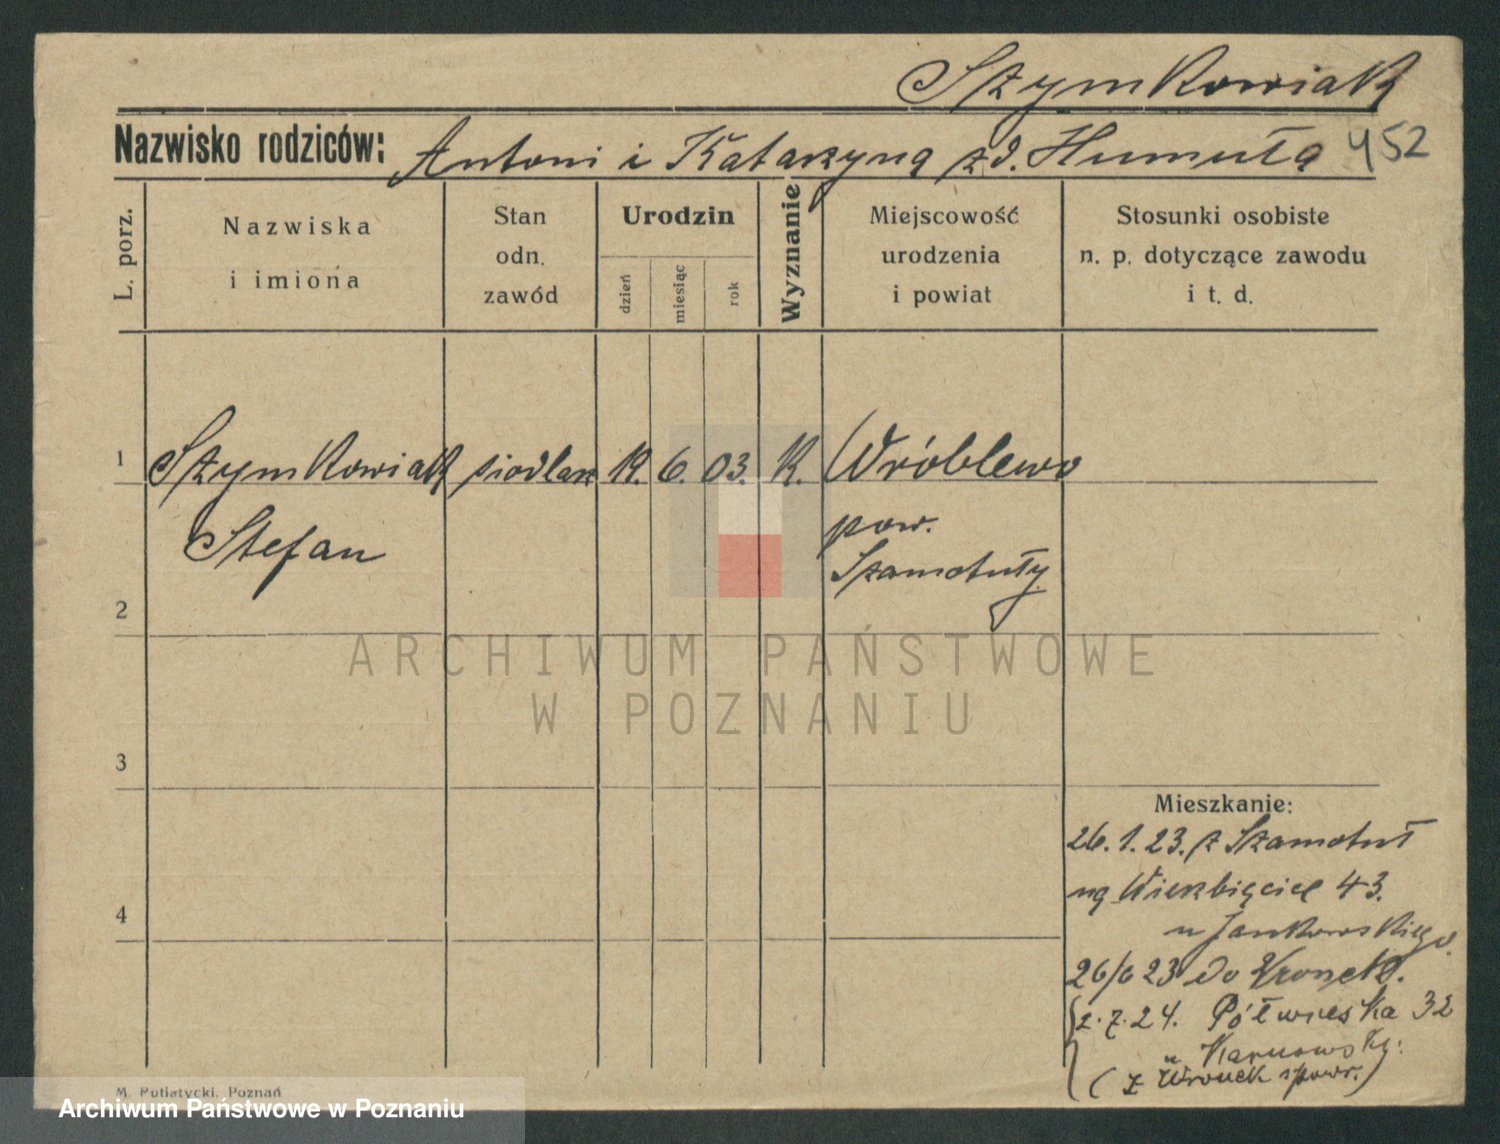 Szymkowiak
Nazwisko rodziców: Antoni i Katarzyna zd. Humuła 452
L. porz.
Nazwiska
i imiona
Stan
odn.
zawód
Urodzin
dzień
miesiąc
rok
Wyznanie
Miejscowość
urodzenia
i powiat
Stosunki osobiste
n. p. dotyczące zawodu
i t. d.
1 Szymkowiak siodlarz 19. 6. 03. K. Wróblewo
Stefan pow.
Szamotuły
2
ARCHIWUM PAŃSTWOWE
W POZNANIU
3
Mieszkanie:
26. 1. 23. z Szamotuł
4
na Wierzbięcice 43.
u Jankowskiego.
26/6 23 do Wronek.
2. 7. 24. Półwiejska 32
u
(z Wronek spowr.)
M. Putiatycki, Poznań
Archiwum Państwowe w Poznaniu